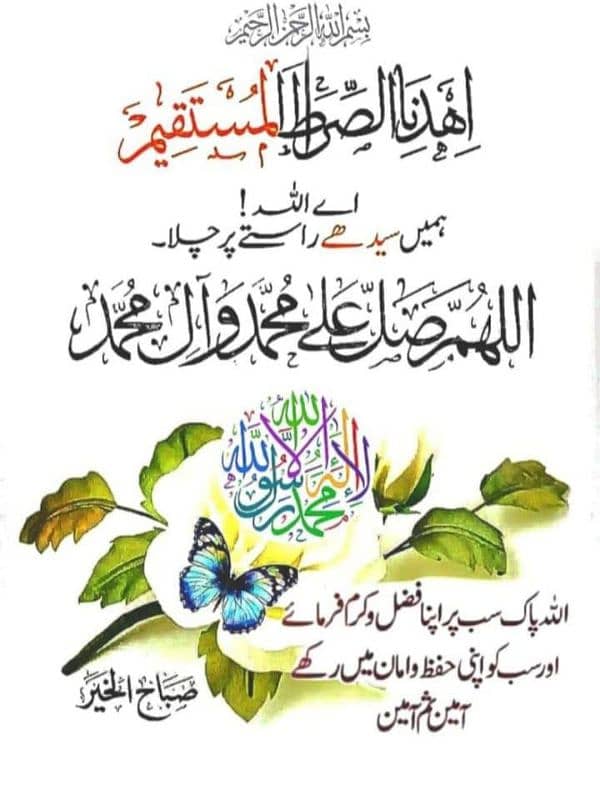 بِسْمِ اللهِ الرَّحْمٰنِ الرَّحِيْمِ
اِهْدِنَا الصِّرَاطَ الْمُسْتَقِيْمَ
اے اللہ!
ہمیں سیدھے راستے پر چلا۔
اللهُمَّ صَلِّ عَلٰى مُحَمَّدٍ وَّآلِ مُحَمَّدٍ
لا إله إلا الله محمد رسول الله
اللہ پاک سب پر اپنا فضل و کرم فرمائے
اور سب کو اپنی حفظ و امان میں رکھے
آمین ثم آمین
صَبَاحُ الْخَيْر